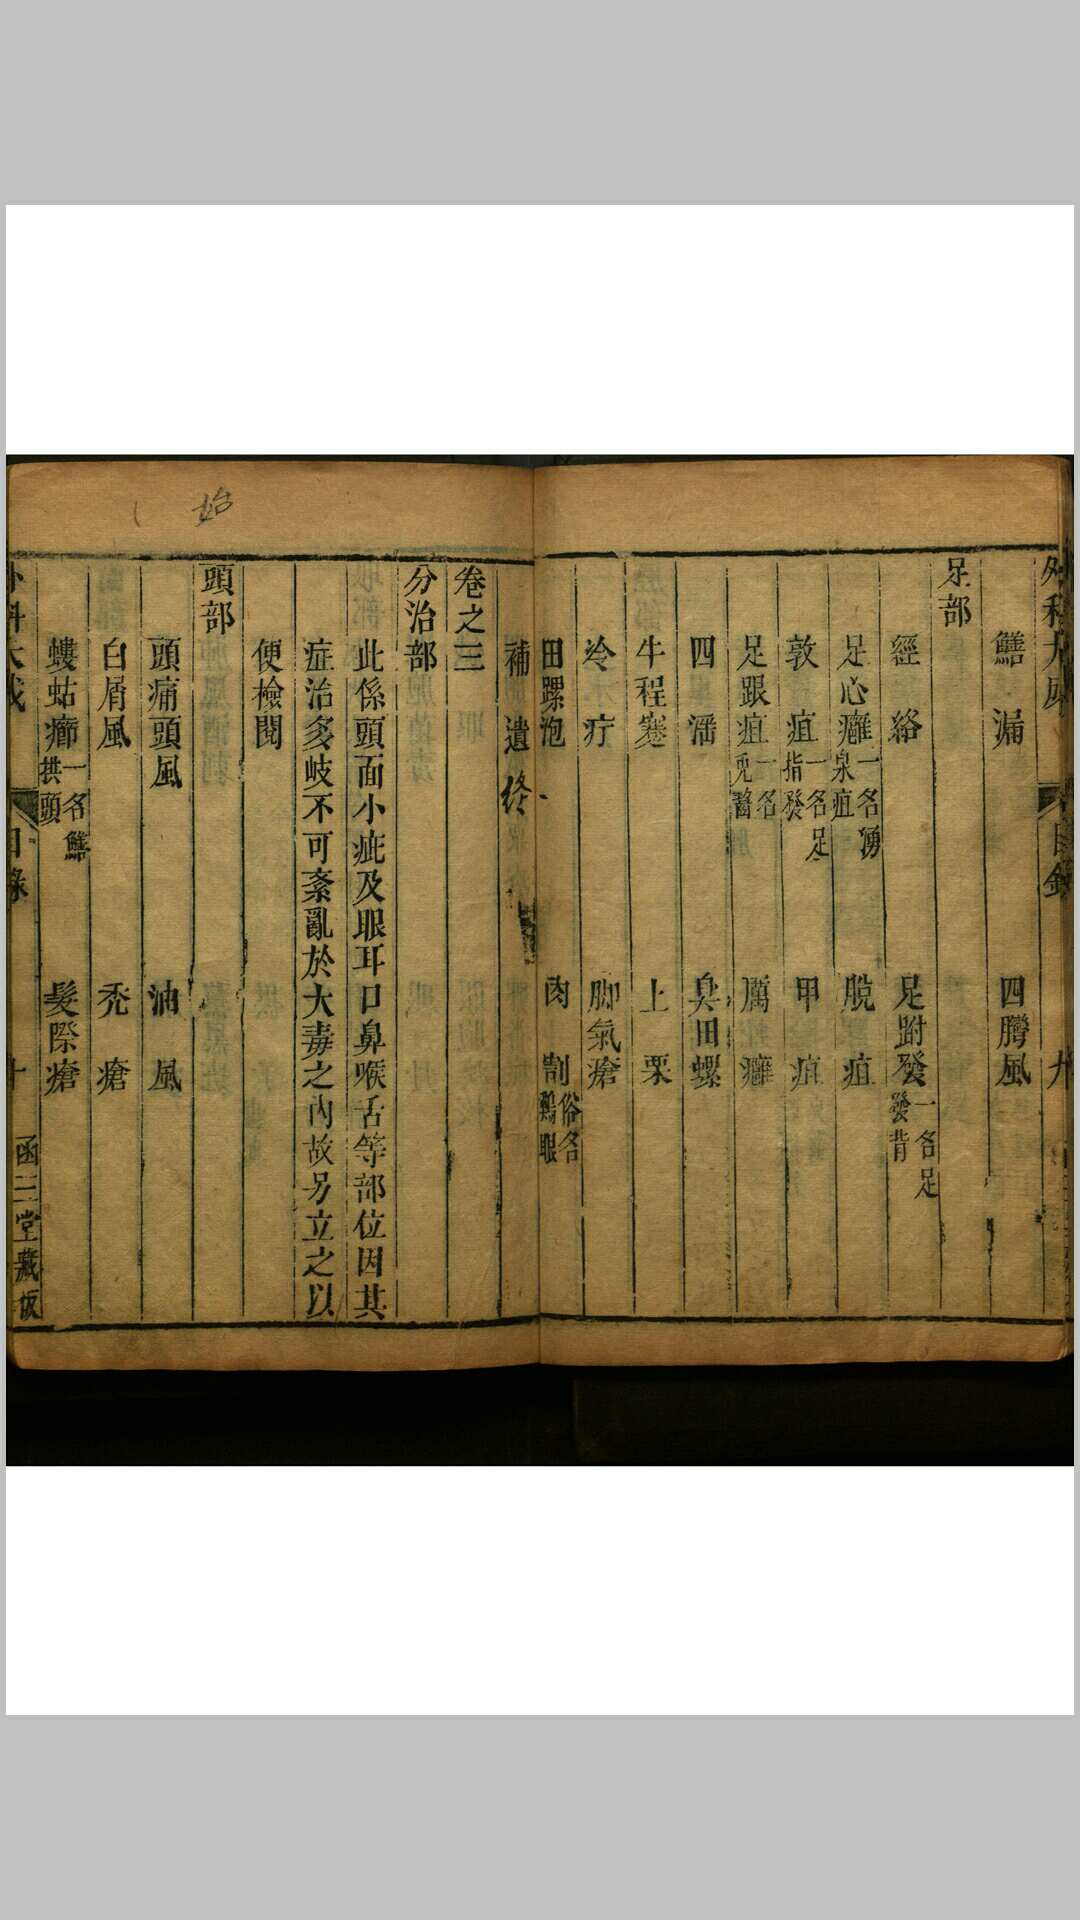 外科大成 目錄 九
鱔漏 四臁風
足部
經絡 足跗發一名足發背
足心癰一名湧泉疽 脫疽
敦疽一名足指發 甲疽
足跟疽一名兎齧 厲癰
四淫 臭田螺
牛程蹇 土栗
冷疔 脚氣瘡
田螺泡 肉刺俗名鷄眼
補遺終
卷之三
分治部
此係頭面小疵及眼耳口鼻喉舌等部位因其
症治多岐不可紊亂於大毒之內故另立之以
便檢閱
頭部
頭痛頭風 油風
白屑風 禿瘡
螻蛄癤一名鱔拱頭 髮際瘡
外科大成 目錄 十 函三堂藏板
始